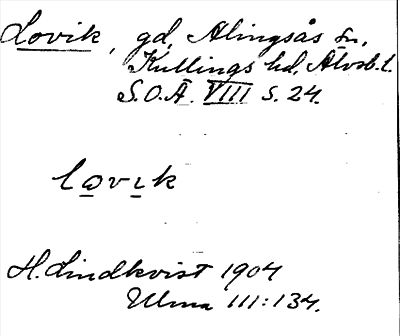 Lovik, gd, Alingsås sn,
Kullings hd, Älvsb. l.
S.O.Ä. VIII s. 24.
lovık
H. Lindkvist 1904
Ulma 111:134.